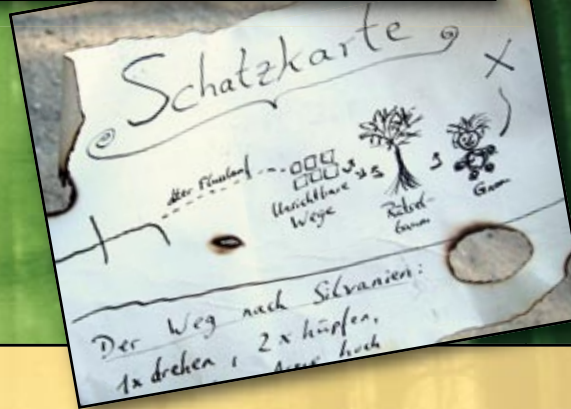 Schatzkarte
X
alter Flusslauf
Unsichtbare
Wege
Rätsel-
baum
Der Weg nach Silvanien:
1x drehen, 2x hüpfen,
hoch